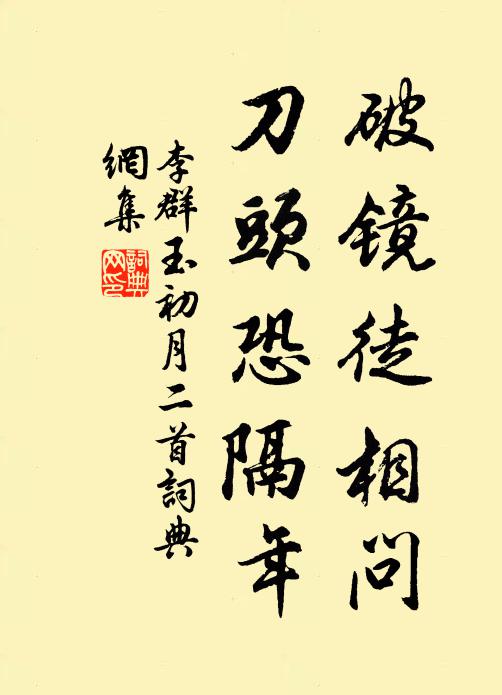 破镜徒相问
刀頭恐隔年
李群玉初月二首詞典
網集
詞典
网印